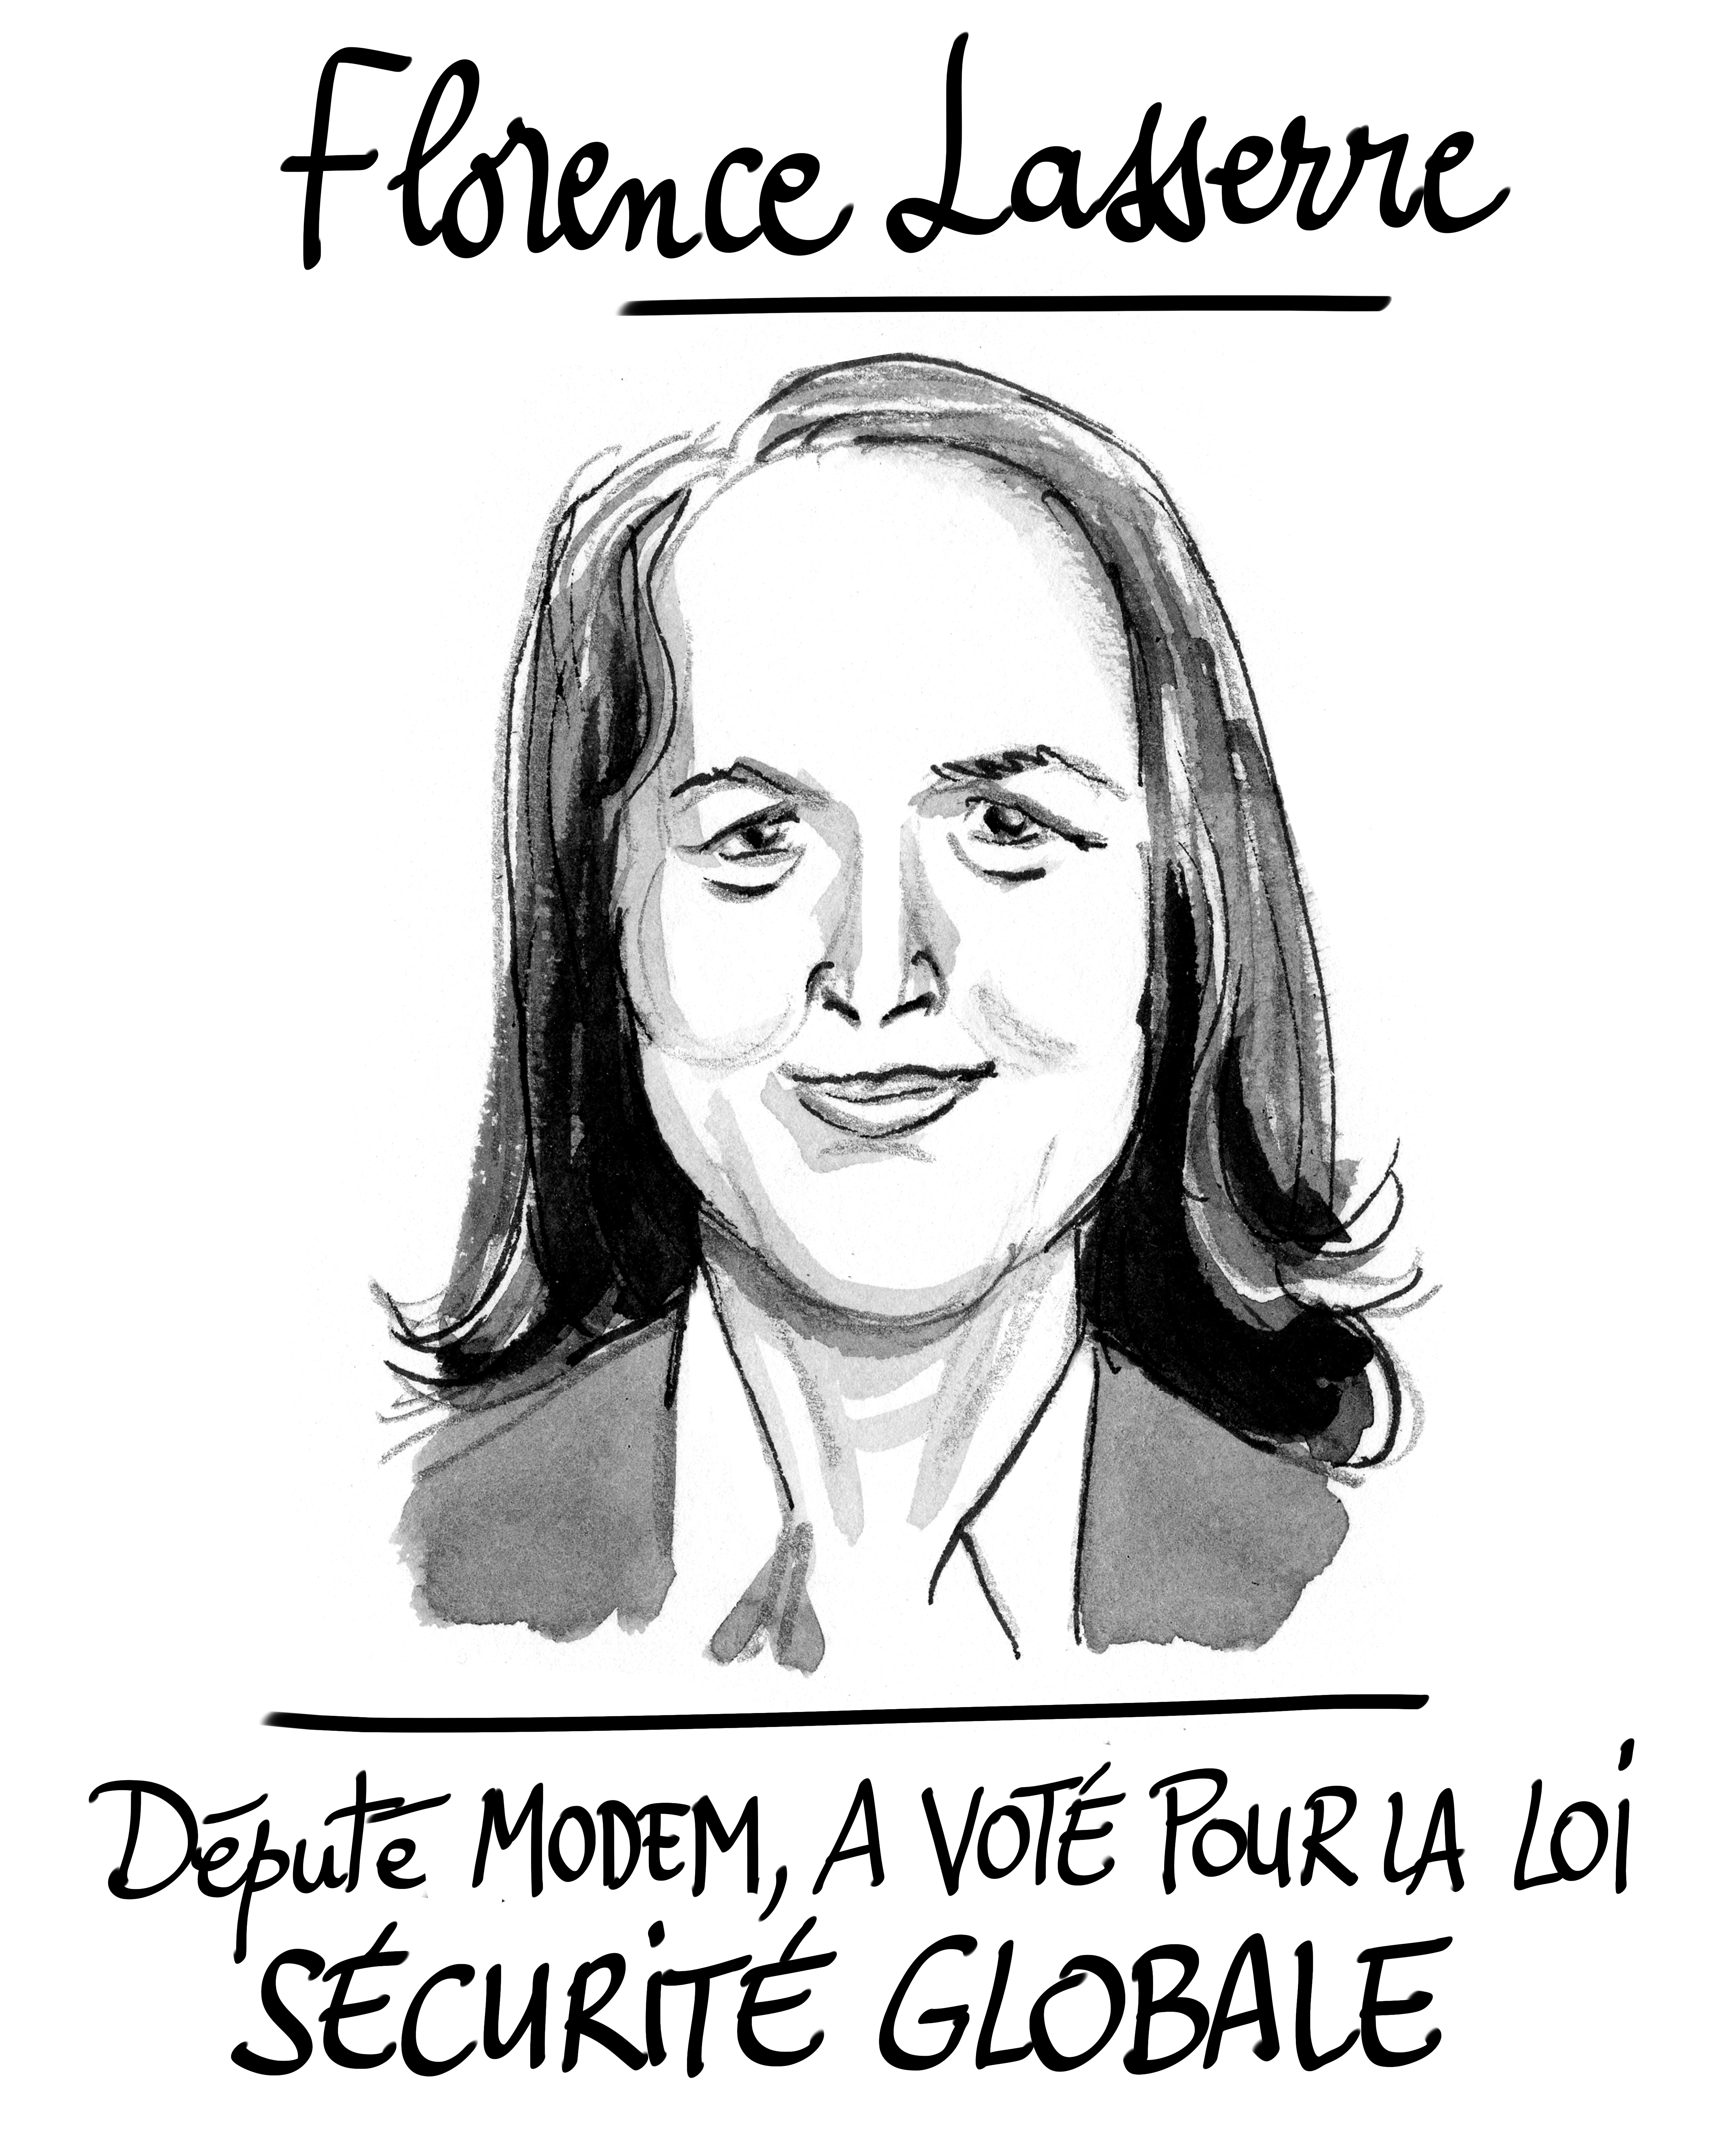 Florence Lasserre
Député MODEM, A VOTÉ POUR LA LOI
SÉCURITÉ GLOBALE